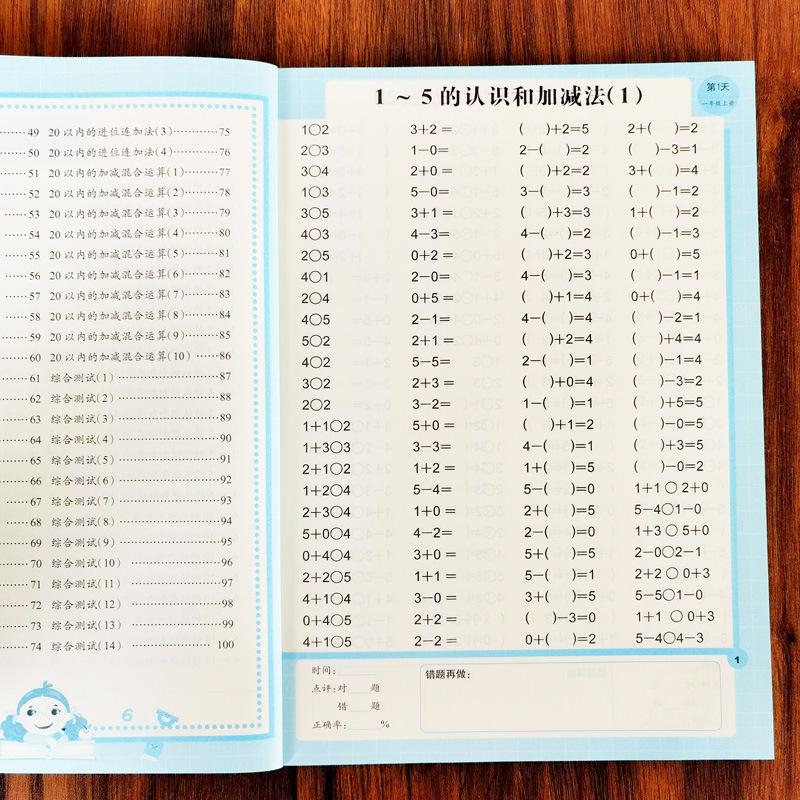 49 20以内的进位连加法(3)………75
50 20以内的进位连加法(4)………76
51 20以内的加减混合运算(1)………77
52 20以内的加减混合运算(2)………78
53 20以内的加减混合运算(3)………79
54 20以内的加减混合运算(4)………80
55 20以内的加减混合运算(5)………81
56 20以内的加减混合运算(6)………82
57 20以内的加减混合运算(7)………83
58 20以内的加减混合运算(8)………84
59 20以内的加减混合运算(9)………85
60 20以内的加减混合运算(10)……86
61 综合测试(1)………………87
62 综合测试(2)………………88
63 综合测试(3)………………89
64 综合测试(4)………………90
65 综合测试(5)………………91
66 综合测试(6)………………92
67 综合测试(7)………………93
68 综合测试(8)………………94
69 综合测试(9)………………95
70 综合测试(10)………………96
71 综合测试(11)………………97
72 综合测试(12)………………98
73 综合测试(13)………………99
74 综合测试(14)………………100
6
1～5的认识和加减法(1)
第1天
一年级上册
1○2 3+2= ( )+2=5 2+( )=2
2○3 1−0= 2−( )=2 ( )−3=1
3○4 2+0= ( )+2=2 3+( )=4
1○3 5−0= 3−( )=3 ( )−1=2
3○5 3+1= ( )+3=3 1+( )=2
4○3 4−3= 4−( )=2 ( )−1=3
2○5 0+2= ( )+2=3 0+( )=5
4○1 2−0= 4−( )=3 ( )−1=1
2○4 0+5= ( )+1=4 0+( )=4
4○5 2−1= 4−( )=4 ( )−2=1
5○2 2+1= ( )+2=4 ( )+4=4
4○2 5−5= 2−( )=1 ( )−1=4
3○2 2+3= ( )+0=4 ( )−3=2
2○2 3−2= 1−( )=1 ( )+5=5
1+1○2 5+0= ( )+1=2 ( )−0=5
1+3○3 3−3= 4−( )=1 ( )+3=5
2+1○2 1+2= 1+( )=5 ( )−0=2
1+2○4 5−4= 5−( )=0 1+1○2+0
2+3○4 1+0= 2+( )=5 5−4○1−0
5+0○4 4−2= 2−( )=0 1+3○5+0
0+4○4 3+0= 5+( )=5 2−0○2−1
2+2○5 1+1= 5−( )=1 2+2○0+3
4+1○4 3−0= 3+( )=5 5−5○1−0
0+4○5 2+2= ( )−3=0 1+1○0+3
4+1○5 2−2= 0+( )=2 5−4○4−3
1
时间：
点评：对 题
错 题
正确率： %
错题再做：